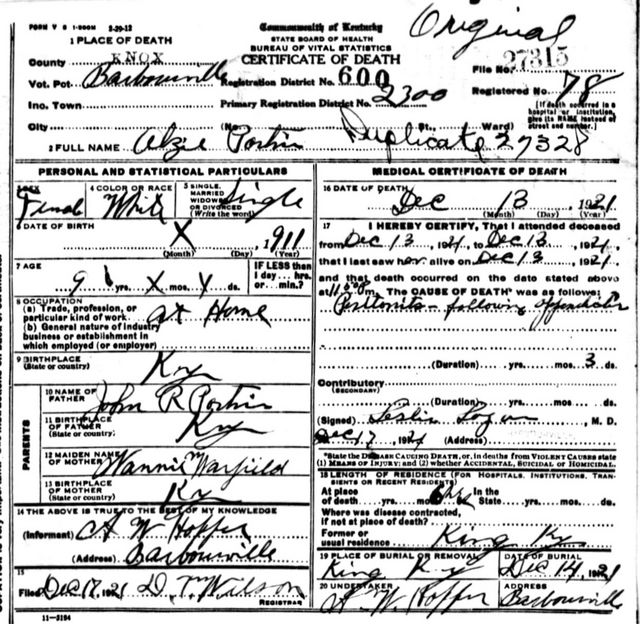 FORM V S 1-200M 3-29-12
Original
Commonwealth of Kentucky
STATE BOARD OF HEALTH
BUREAU OF VITAL STATISTICS
CERTIFICATE OF DEATH
1 PLACE OF DEATH
County KNOX
File No. 27315
Vot. Pct. Barbourville Registration District No. 600
Registered No. 78
Inc. Town Primary Registration District No. 2300
[If death occurred in a hospital or institution, give its NAME instead of street and number.]
City (No. St. Ward)
2 FULL NAME Duplicate 27328
PERSONAL AND STATISTICAL PARTICULARS
3 SEX Female
4 COLOR OR RACE White
5 SINGLE, MARRIED, WIDOWED OR DIVORCED (Write the word) Single
6 DATE OF BIRTH X , 1911
(Month) (Day) (Year)
7 AGE yrs. X mos. ds.
IF LESS than 1 day... hrs. or... min.?
8 OCCUPATION
(a) Trade, profession, or particular kind of work at Home
(b) General nature of industry business or establishment in which employed (or employer)
9 BIRTHPLACE (State or country) Ky
PARENTS
10 NAME OF FATHER John R
11 BIRTHPLACE OF FATHER (State or country) Ky
12 MAIDEN NAME OF MOTHER Nannie Warfield
13 BIRTHPLACE OF MOTHER (State or country) Ky
14 THE ABOVE IS TRUE TO THE BEST OF MY KNOWLEDGE
(Informant) A W Hopper
(Address) Barbourville
15
Filed Dec 17, 1921 D. T. Wilson
REGISTRAR
11-3184
MEDICAL CERTIFICATE OF DEATH
16 DATE OF DEATH Dec 13 1921
(Month) (Day) (Year)
17 I HEREBY CERTIFY, That I attended deceased
from Dec 13, 1921, to Dec 13, 1921,
that I last saw her alive on Dec 13, 1921,
and that death occurred on the date stated above
at m. The CAUSE OF DEATH* was as follows:
following
(Duration) yrs. mos. 3 ds.
Contributory (SECONDARY)
(Duration) yrs. mos. ds.
(Signed) Leslie Logan, M. D.
Dec 17 1921 (Address)
*State the DISEASE CAUSING DEATH, or, in deaths from VIOLENT CAUSES state
(1) MEANS OF INJURY; and (2) whether ACCIDENTAL, SUICIDAL OR HOMICIDAL.
18 LENGTH OF RESIDENCE (FOR HOSPITALS, INSTITUTIONS, TRANSIENTS OR RECENT RESIDENTS)
At place of death yrs. mos. ds. In the State yrs. mos. ds.
Where was disease contracted, if not at place of death?
Former or usual residence King Ky
19 PLACE OF BURIAL OR REMOVAL King Ky
DATE OF BURIAL Dec 14, 1921
20 UNDERTAKER A. W. Hopper
ADDRESS Barbourville